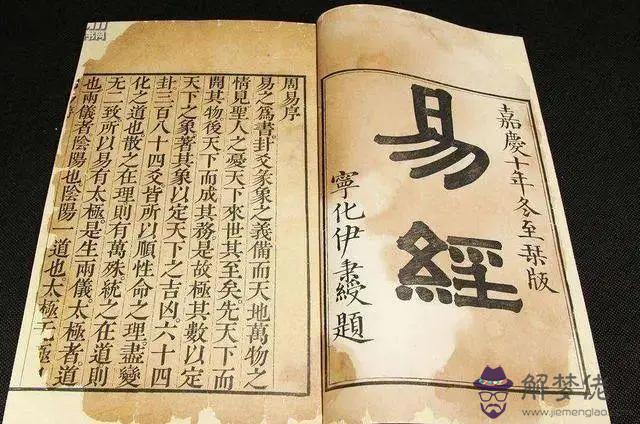 嘉慶十年冬至栞版
易經
寧化伊秉綬題
周易序
易之爲書卦爻彖象之義備而天地萬物之
情見聖人之憂天下來世其至矣。先天下而
開其物後天下而成其務。是故極其數以定
天下之象著其象以定天下之吉凶六十四
卦三百八十四爻皆所以順性命之理。盡變
化之道也散之在理則有萬殊。統之在道則
无二致所以易有太極。是生兩儀。太極者道
也兩儀者陰陽也陰陽一道也太極无極
解梦佬
www.jiemenglao.com